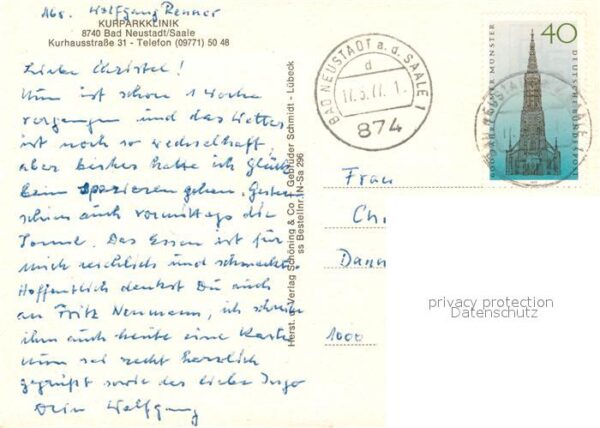 Abs. Wolfgang Renner
KURPARKKLINIK
8740 Bad Neustadt/Saale
Kurhausstraße 31 - Telefon (09771) 50 48
Liebe Christel!
Nun ist schon 1 Woche
vergangen und das Wetter
ist noch so wechselhaft,
aber bisher hatte ich Glück
beim Spazieren gehen. Gestern
schien auch vormittags die
Sonne. Das Essen ist für
mich reichlich und schmeckt.
Hoffentlich denkst Du auch
an Fritz Neumann, ich schreibe
ihm auch heute eine Karte
nun sei recht herzlich
gegrüßt sowie das liebe Inge
Dein Wolfgang
Herst. u. Verlag Schöning & Co. + Gebrüder Schmidt - Lübeck
ss Bestellnr. N-Sa 296
BAD NEUSTADT a. d. SAALE 1
d
874
40
DEUTSCHE BUNDESPOST
Frau
Ch
Dann
1000
privacy protection
Datenschutz